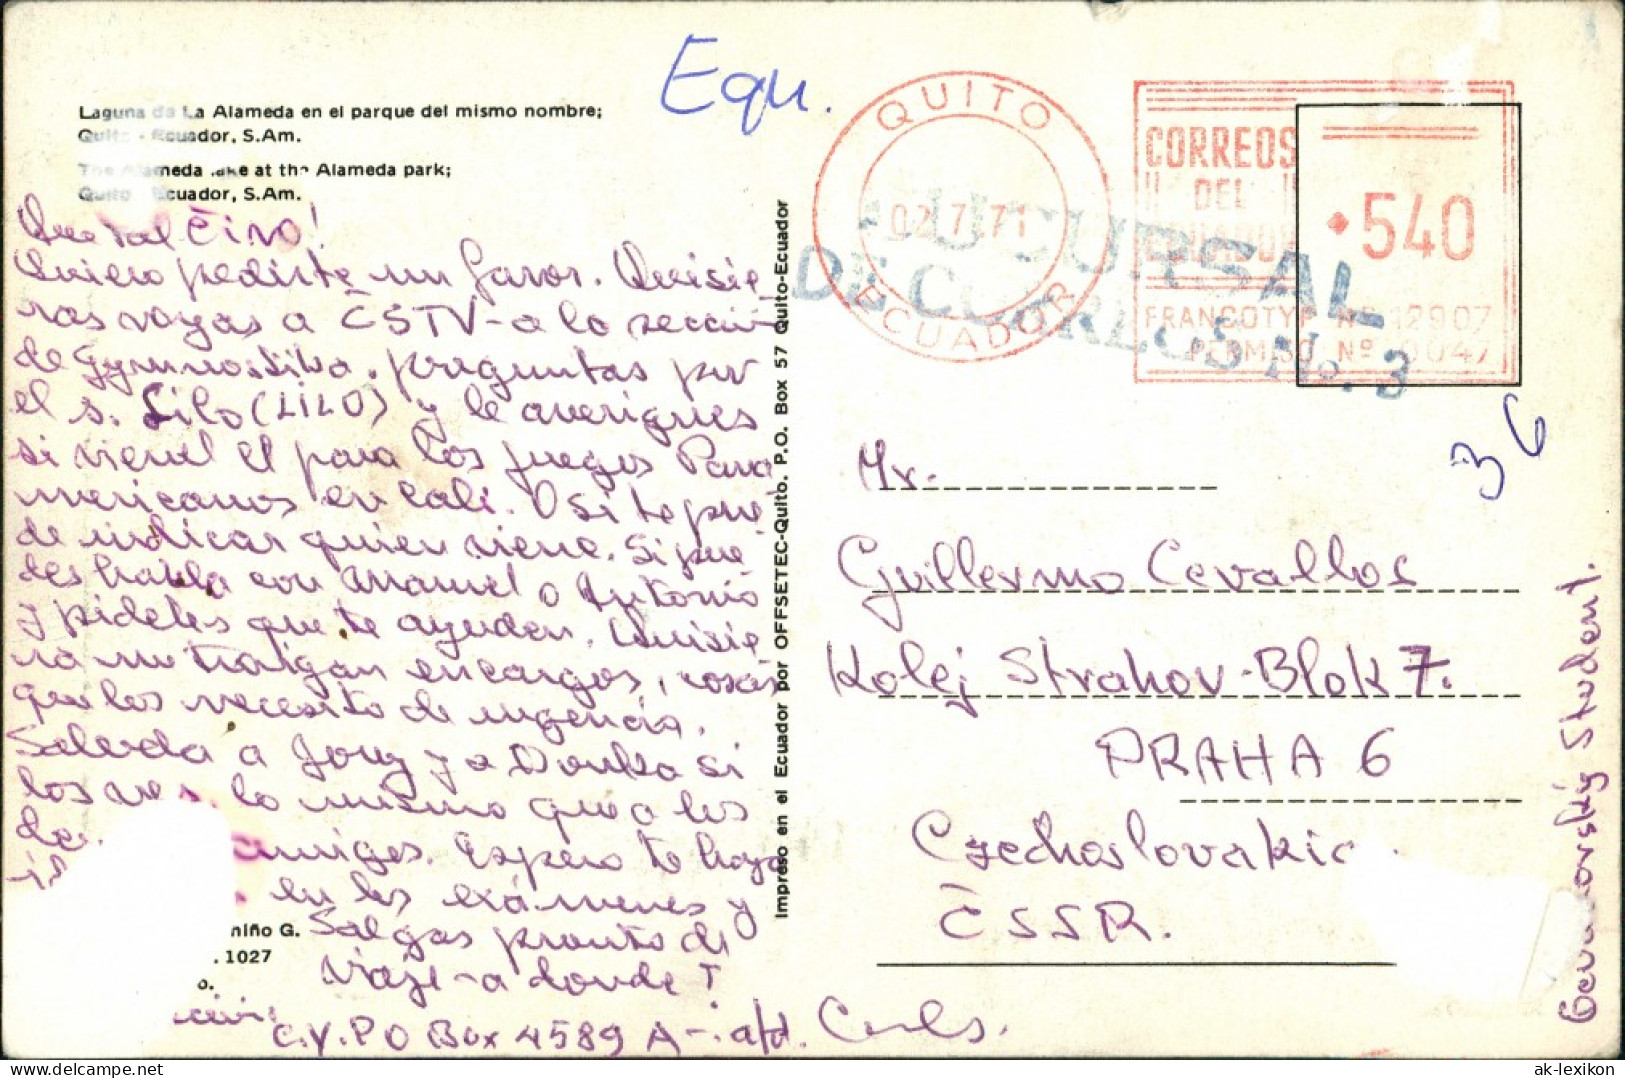 Laguna de La Alameda en el parque del mismo nombre;
Quito - Ecuador, S.Am.
The Alameda lake at the Alameda park;
Quito Ecuador, S.Am.
Que tal Čiro!
Quiero pedirte un favor. Quisie-
ras vayas a ČSTV - a la sección
de Gymnastika, preguntas por
el s. Lilo (LILO) y le averigues
si viene el para los juegos Pana
mericanos en Cali. O si te pue
de indicar quien viene. Si pue
des habla con Manuel o Antonio
y pideles que te ayuden. Quisie
ra me traigan encargos, cosas
que los necesito de urgencia.
Saluda a Jouy y a Donka si
los ves, lo mismo que a los
de amigos. Espero te haya
en los exámenes y
Salgas pronto de
viaje - a donde?
niño G.
. 1027
o.
C.V. P O Box 4589 A-. a/d. Carlos.
Impreso en el Ecuador por OFFSETEC-Quito. P.O. Box 57 Quito-Ecuador
Equ.
QUITO
02.7.71
ECUADOR
CORREOS
DEL
ECUADOR
540
FRANCOTYP Nº 12907
PERMISO Nº 0047
SUCURSAL
DE CORREOS No. 3
36
Mr.
Guillermo Cevallos
Kolej Strahov - Blok 7.
PRAHA 6
Czechoslovakia
ČSSR.
Student.
ak-lexikon